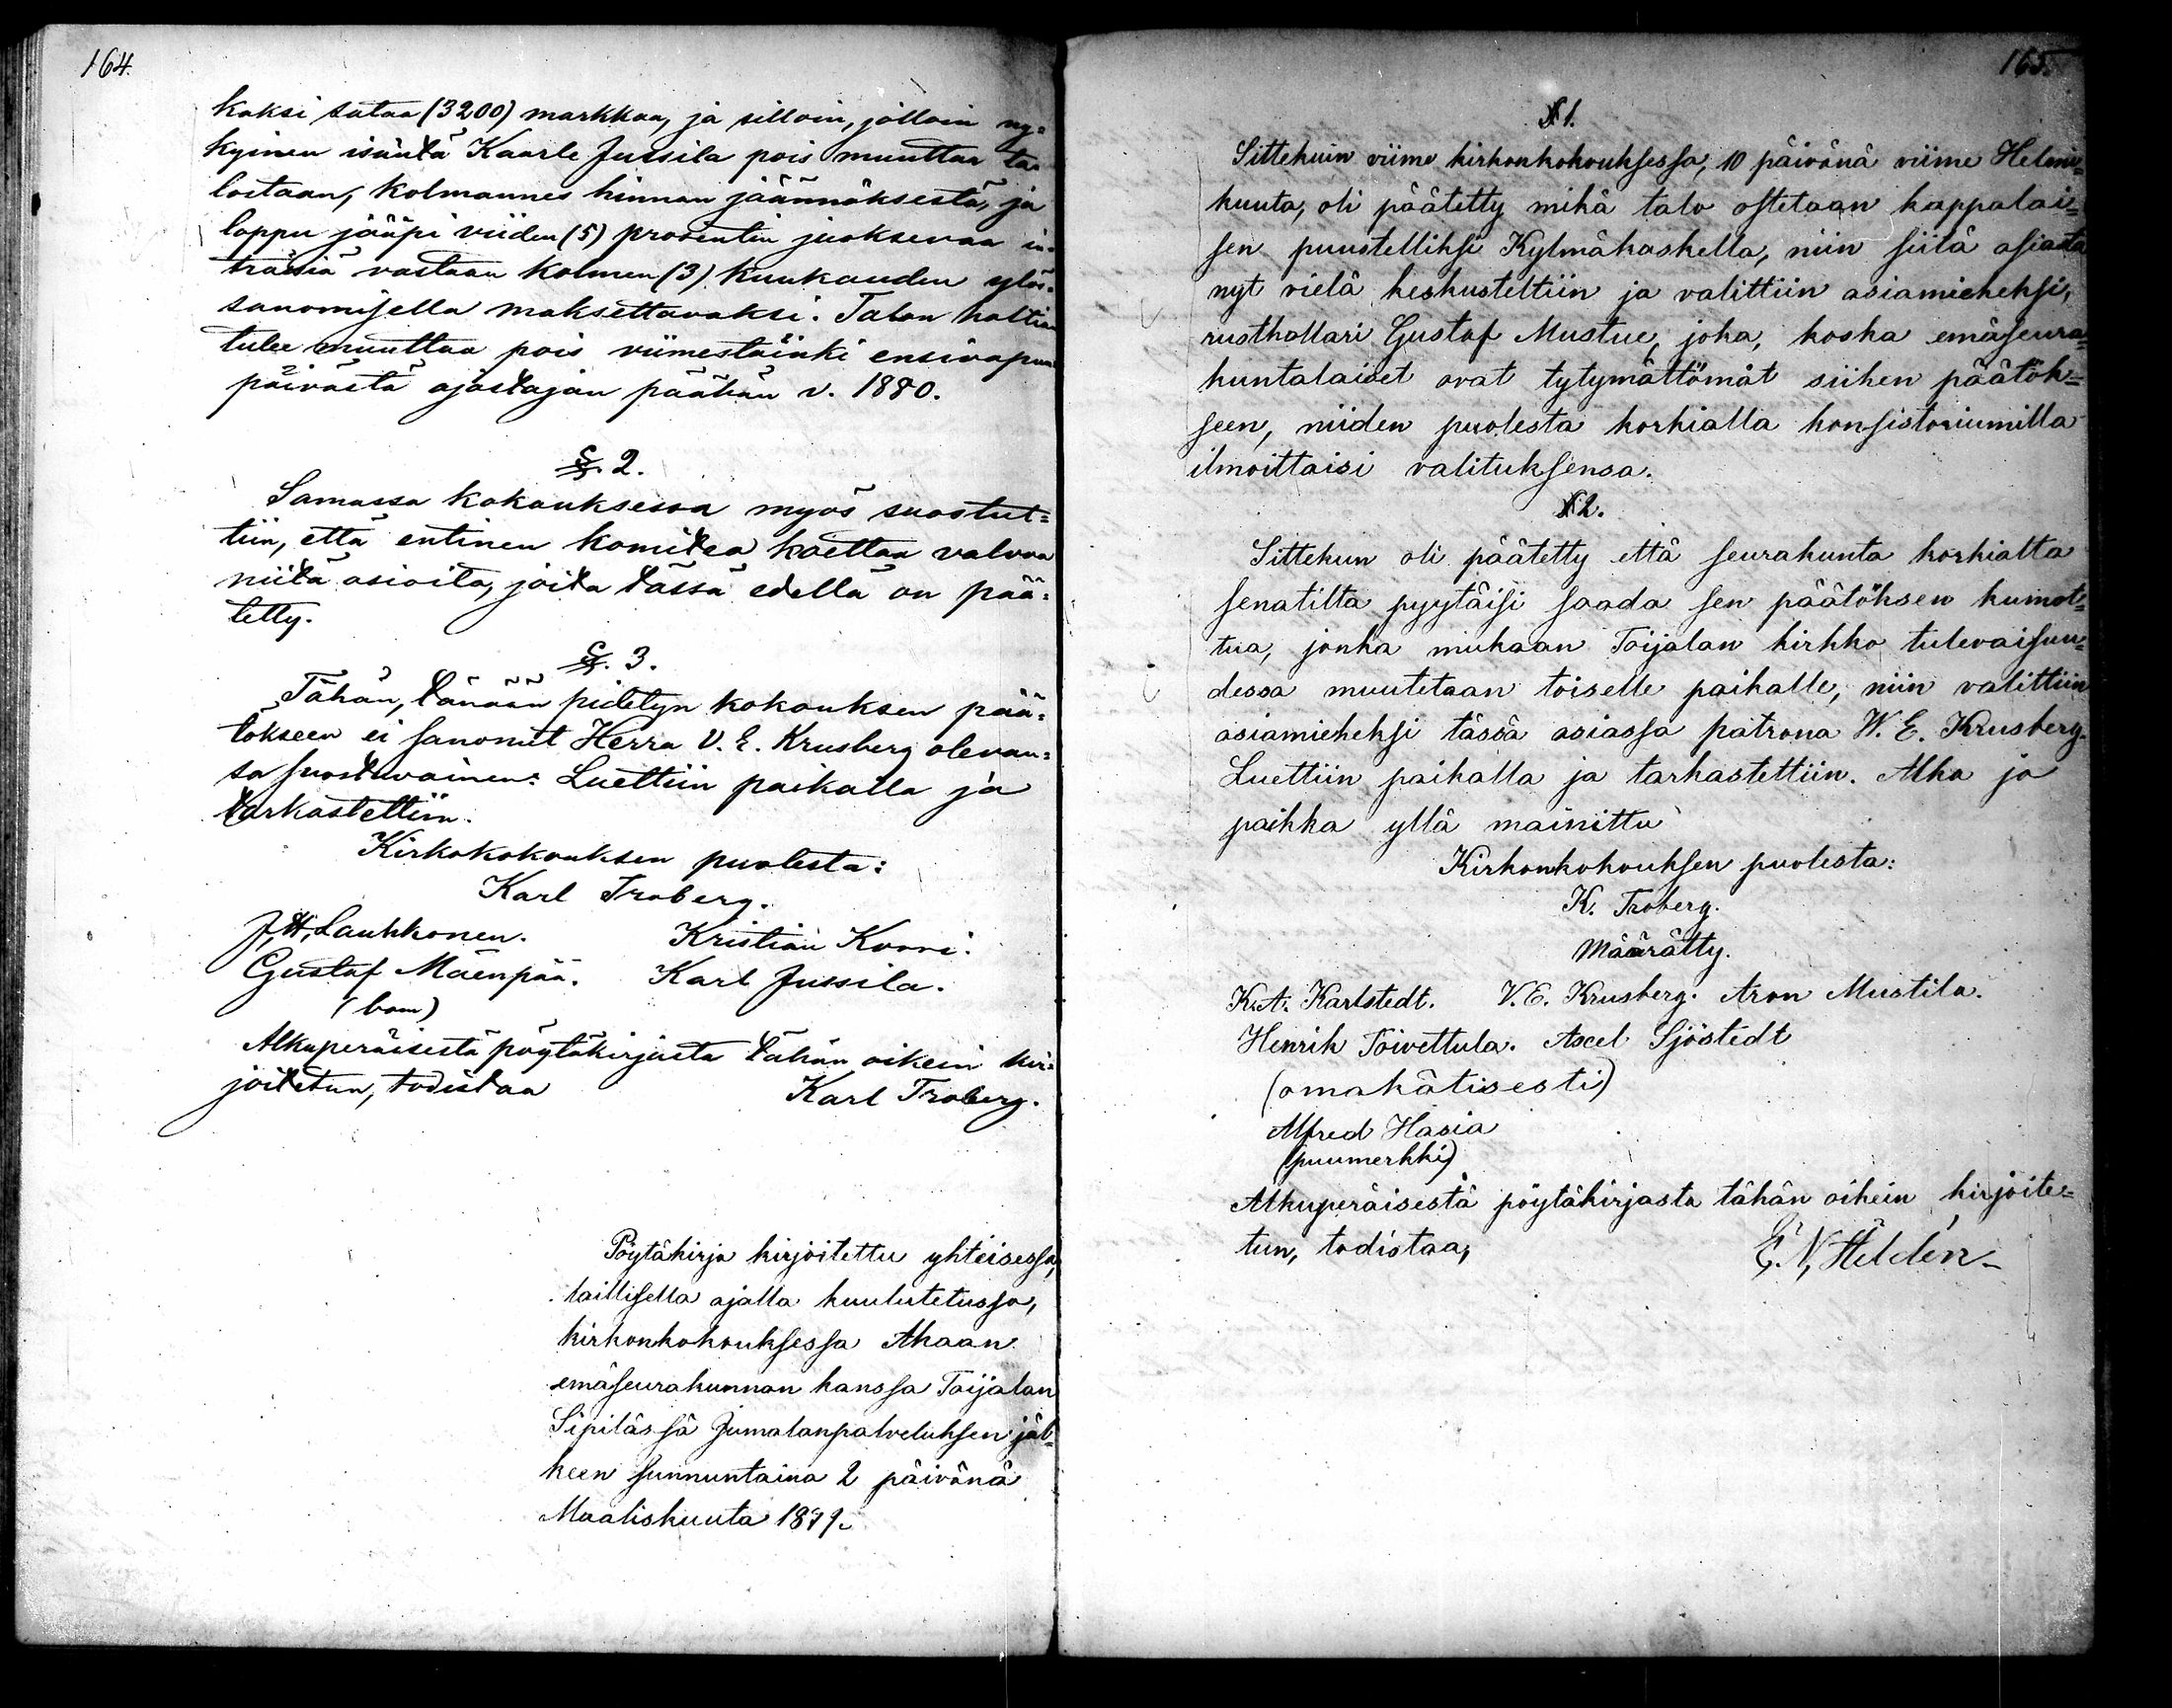 164.
kaksi sataa (3200) markkaa, ja silloin, jolloin ny=
kyinen isäntä Kaarle Jussila pois muuttaa ta=
lostaan, kolmannes hinnan jäännöksestä, ja
loppu jääpi viiden (5) prosentin juoksevaa in=
trässiä vastaan kolmen (3) kuukauden ylös=
sanomisella maksettavaksi. Talon haltian
tulee muuttaa pois viimestäinki ensivapun
päivästä ajastajan päähän v. 1880.
§. 2.
Samassa kokouksessa myös suostut=
tiin, että entinen komitea koettaa valvoa
niitä asioita, joita tässä edellä on pää=
tetty.
§. 3.
Tähän, tänään pidetyn kokouksen pää=
tökseen ei sanonut Herra V. E. Krusberg olevan=
sa suostuvainen: Luettiin paikalla ja
tarkastettiin.
Kirkokokouksen puolesta:
Karl Troberg.
J. H. Laukkonen. Kristian Kurri.
Gustaf Mäenpää. Karl Jussila.
(bom)
Alkuperäisestä pöytäkirjasta tähän oikein kir=
joitetun, todistaa
Karl Troberg.
Pöytäkirja kirjoitettu yhteisessa,
laillisella ajalla kuulutetussa,
kirkonkokouksessa Akaan
emäseurakunnan kanssa Toijalan
Sipilässä Jumalanpalveluksen jäl=
keen sunnuntaina 2 päivänä
Maaliskuuta 1879.
165.
§ 1.
Sittekuin viime kirkonkokouksessa, 10 päivänä viime Helmi=
kuuta, oli päätetty mikä talo ostetaan kappalai=
sen puustelliksi Kylmäkoskella, niin siitä asiasta
nyt vielä keskusteltiin ja valittiin asiamieheksi,
rusthollari Gustaf Mustue, joka, koska emäseura=
kuntalaiset ovat tytymättömät siihen päätök=
seen, niiden puolesta korkialla konsistoriumilla
ilmoittaisi valituksensa.
§ 2.
Sittekun oli päätetty että seurakunta korkialta
senatilta pyytäisi saada sen päätöksen kumot=
tua, jonka mukaan Toijalan kirkko tulevaisuu=
dessa muutetaan toiselle paikalle, niin valittiin
asiamieheksi tässä asiassa patrona W. E. Krusberg.
Luettiin paikalla ja tarkastettiin. Aika ja
paikka yllä mainittu
Kirkonkokouksen puolesta:
K. Troberg.
Määrätty.
K. A. Karlstedt. V. E. Krusberg. Aron Mustila.
Henrik Toivettula. Axel Sjöstedt
(omakätisesti)
Alfred Hasia
(puumerkki)
Alkuperäisestä pöytäkirjasta tähän oikein kirjoite=
tun, todistaa,
E. N. Heldén